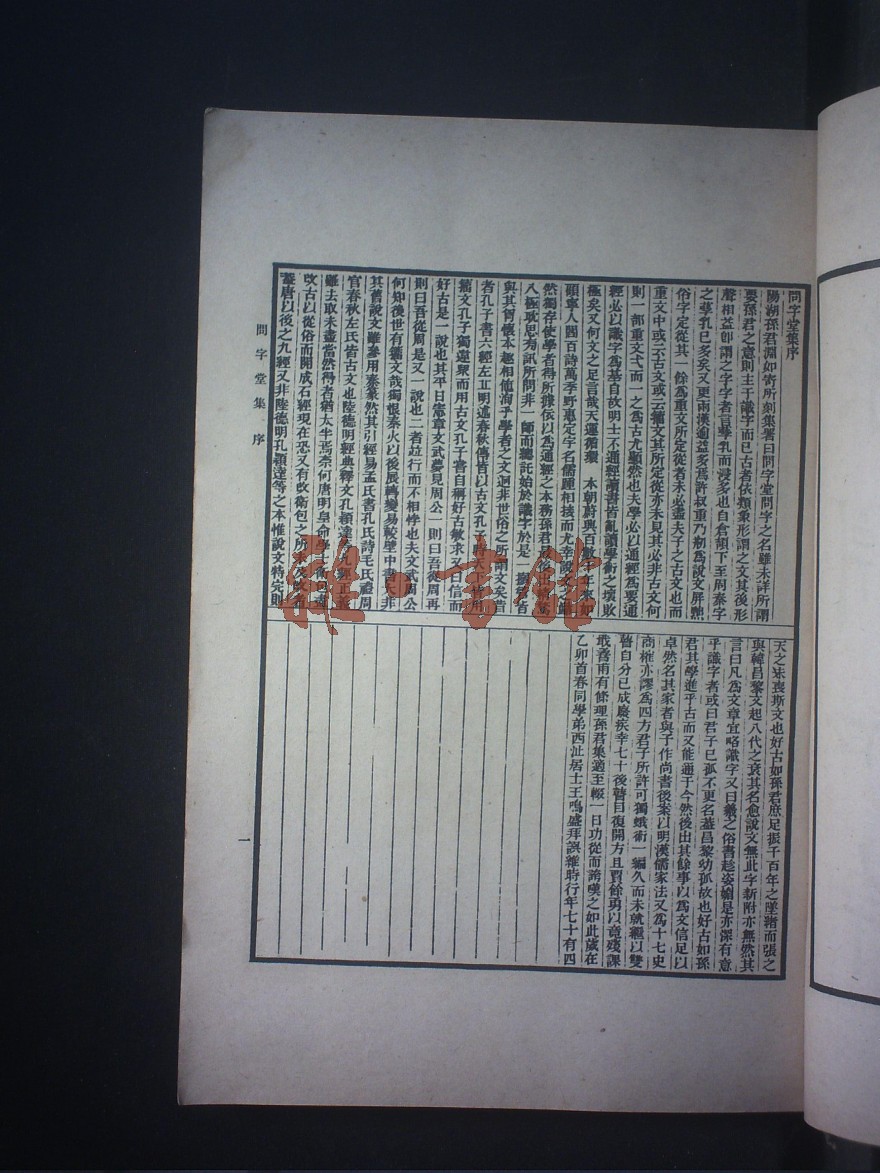 問字堂集序
陽湖孫君淵如哲所刻集署曰問字堂問字之名雖未詳所謂
要孫君之意則主于識字而已古者依類象形謂之文其後形
聲相益卽謂之字字者言孳乳而浸多也自倉頡下至周秦字
之孳乳已多矣又更兩漢適益多焉許叔重乃初爲說文屏黜
俗字定從其一餘爲重文所定從者未必盡夫子之古文也而
重文中或云古文或云籒文其所定從亦未見其必非古文何
則一部重文弍而一之爲古文尤顯然也夫學必以通經爲要通
經必以識字爲基自故明士不通經讀書皆亂讀學術之壞敗
極矣又何文之足言哉天運循環 本朝蔚興百數十年來如
顧寧人閻百詩萬季野惠定字名儒踵相接而尤幸說文之
然獨存使學者得所據依以爲通經之本務孫君
八極耽思旁訊所問非一師而總託始於識字於是一
與其質懷本趣相値洵乎學者之文迥非世俗之所謂文矣昔
者孔子書六經左丘明述春秋傳皆以古文孔子時天下皆用
籒文孔子獨違眾而用古文孔子嘗自稱好古敏求又曰信而
好古是一說也其平日憲章文武夢見周公一則曰吾從周再
則曰吾從周是又一說也二者竝行而不相悖也夫文武周公
何知後世有籒文哉獨恨秦火以後展轉變易較壁中書大非
其舊說文雖參用秦篆然其引經易孟氏書孔氏詩毛氏禮周
官春秋左氏皆古文也陸德明經典釋文孔穎達等九經正義
雖去取未盡當然得者猶太半焉奈何唐明皇命學士衛包
改古以從俗而開成石經現在恐又有改衛包之所未及改者
蓋唐以後之九經又非陸德明孔穎達等之本惟說文特完則
天之未喪斯文也好古如孫君庶足振千百年之墜緖而張之
與韓昌黎文起八代之衰其名愈說文無此字新附亦無然其
言曰凡爲文章宜略識字又曰羲之俗書趁姿媚是亦深有意
乎識字者或曰君子已孤不更名葢昌黎幼孤故也好古如孫
君其學進乎古而又能通于今然後出其餘事以爲文信足以
卓然名其家者與予作尚書後案以明漢儒家法又爲十七史
商榷亦謬爲四方君子所許可獨蛾術一編久而未就繼以雙
瞽自分已成廢疾幸七十後瞽目復開方且賈餘勇以竟殘課
哉喜甫有條理孫君集適至輟一日功從而誇嘆之如此歲在
乙卯首春同學弟西沚居士王鳴盛拜譔雜時行年七十有四
問字堂集 序
一